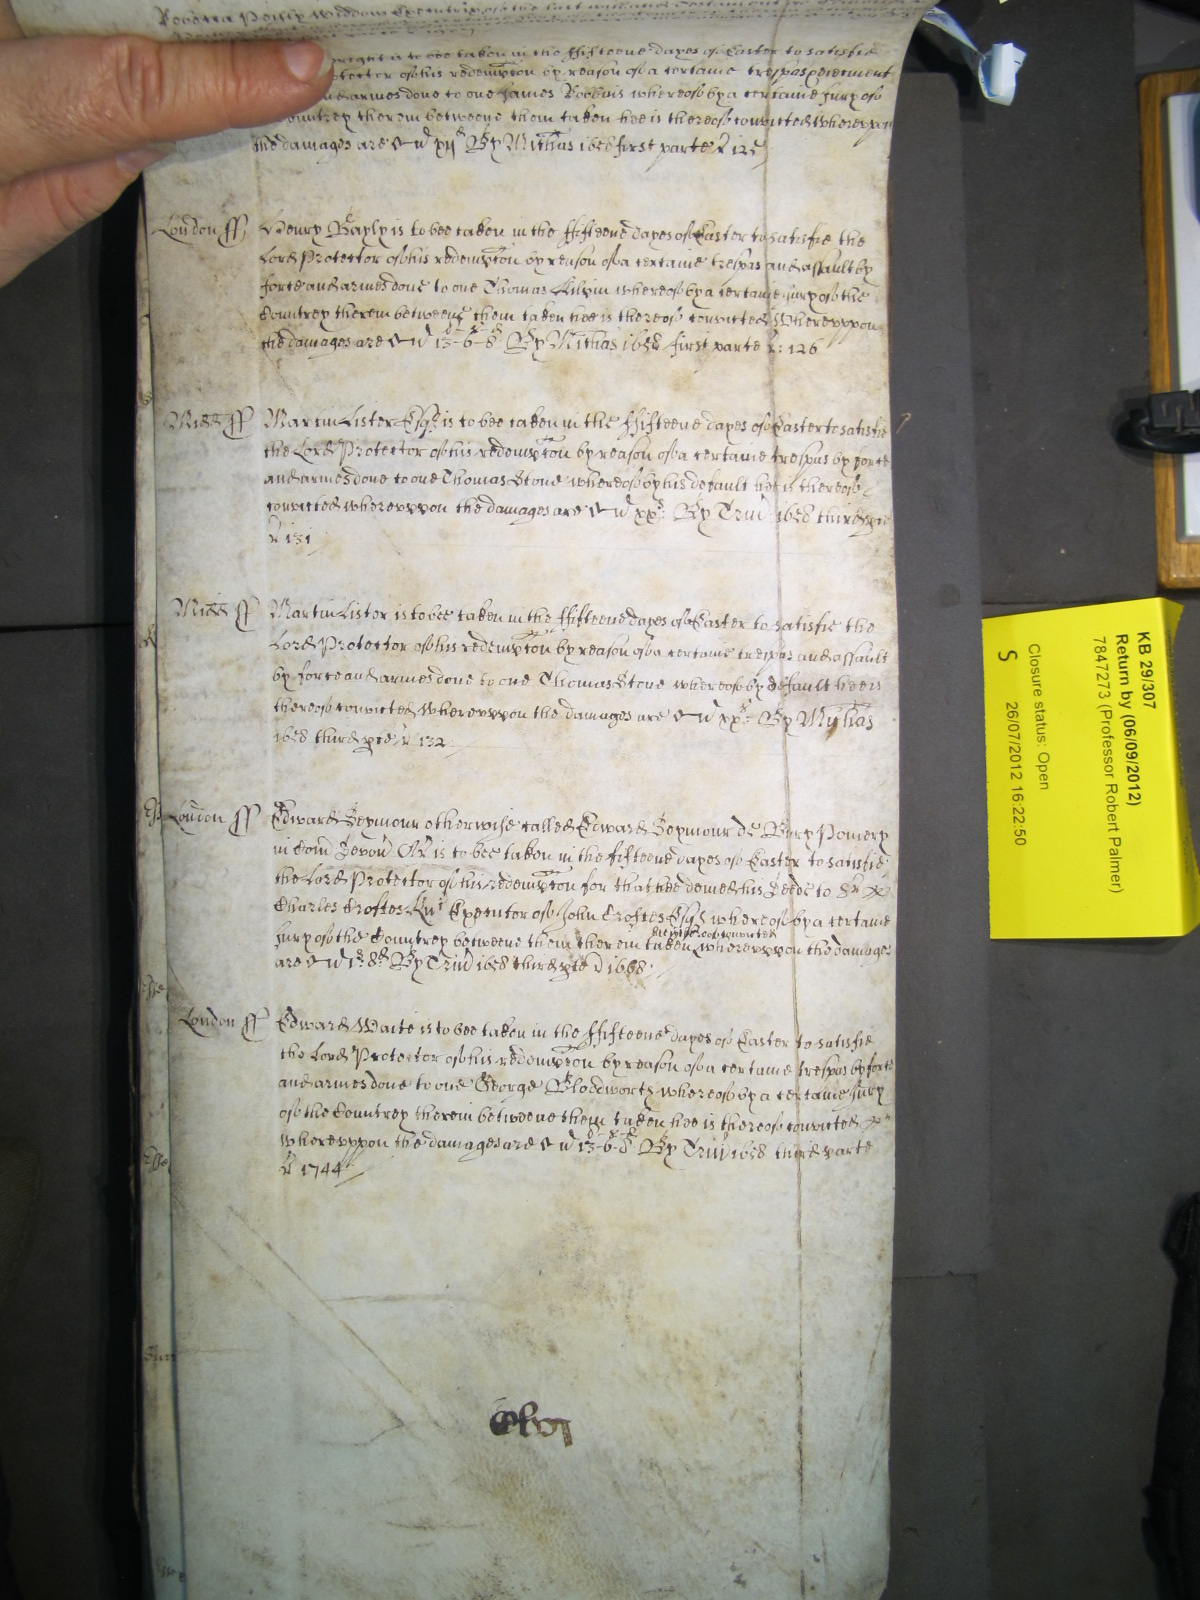 Rebecca Widdow Executrix of the last will and Testament
wright is to bee taken in the ffifteene dayes of Easter to satisfie
Protector of his redempton by reason of a certaine trespas
and armes done to one James whereof by a certaine Jury of
Countrey therein betweene them taken hee is thereof convicted Whereupon
the damages are &c ad xijd By Michas 1658 first parte R 125
London ss Henry Bayly is to bee taken in the ffifteene dayes of Easter to satisfie the
Lord Protector of his redempton by reason of a certaine trespas and assault by
force and armes done to one Thomas whereof by a certaine Jury of the
Countrey therein betweene them taken hee is thereof convicted Whereuppon
the damages are &c ad 13-6-8 By Michas 1658 first parte R: 126
Midd ss Martin Lister Esqr is to bee taken in the ffifteene dayes of Easter to satisfie
the Lord Protector of his redempton by reason of a certaine trespas by force
and armes done to one Thomas Stone whereof by his default hee is thereof
convicted whereuppon the damages are &c ad xxs By Trin 1658 third pte
R 131
Midd ss Martin Lister is to bee taken in the ffifteene dayes of Easter to satisfie the
Lord Protector of his redempton by reason of a certaine trespas and assault
by force and armes done to one Thomas Stone whereof by default hee is
thereof convicted Whereuppon the damages are &c ad xxs By Michas
1658 third pte R 132
London ss Edward Seymour otherwise called Edward Seymour de Bury Pomery
in Com Devon Ar is to bee taken in the fifteene dayes of Easter to satisfie
the Lord Protector of his redempton for that hee denied his Deede to Sr
Charles Croftes Knt Executor of John Croftes Esqr whereof by a certaine
Jury of the Countrey betweene them therein taken hee is thereof convicted whereuppon the damages
are &c ad 1s 8d By Trin 1658 third pte R 1668
London ss Edward Waite is to bee taken in the ffifteene dayes of Easter to satisfie
the Lord Protector of his redempton by reason of a certaine trespas by force
and armes done to one George Blodworth whereof by a certaine Jury
of the Countrey therein betweene them taken hee is thereof convicted
whereuppon the damages are &c ad 13-6-8 By Trin 1658 third parte
R 1744
KB 29/307
Return by (06/09/2012)
7847273 (Professor Robert Palmer)
Closure status: Open
S 26/07/2012 16:22:50